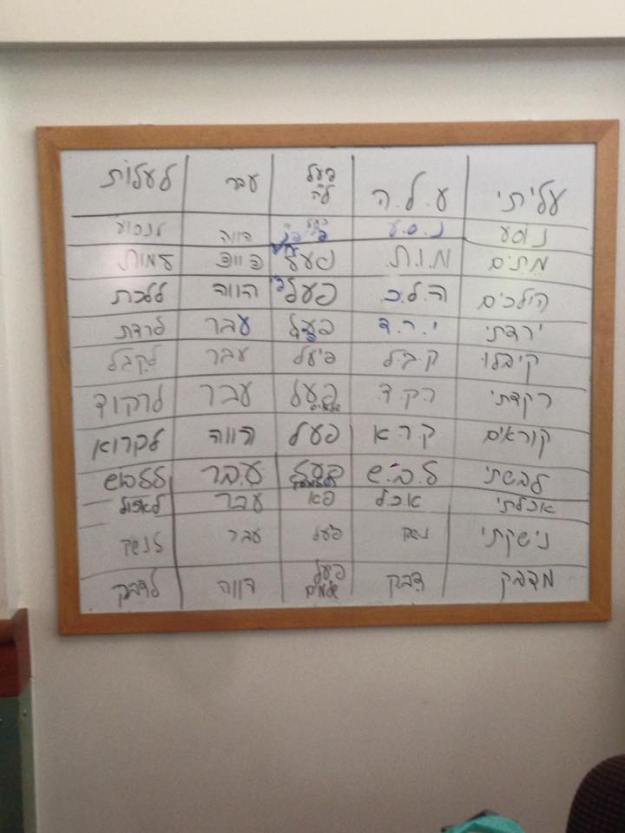 עליתי ע.ל.ה פעל ל"ה עבר לעלות
נוסע נ.ס.ע הווה לנסוע
מתים מ.ו.ת פעל למות
הולכים ה.ל.כ פעל הווה ללכת
ירדתי י.ר.ד פעל עבר לרדת
קיבלו ק.ב.ל פיעל עבר לקבל
רקדתי ר.ק.ד פעל שלמים עבר לרקוד
קוראים ק.ר.א פעל הווה לקרוא
לבשתי ל.ב.ש פעל עבר ללבוש
אכלתי אכל פא עבר לאכול
נישקתי נשק פעל עבר לנשק
מדבק דבק פעל שלמים הווה לדבק